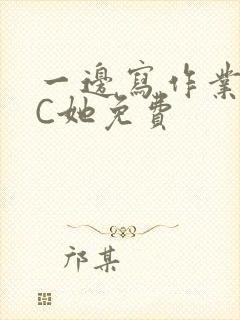 一邊寫作業
C她免費
祁某